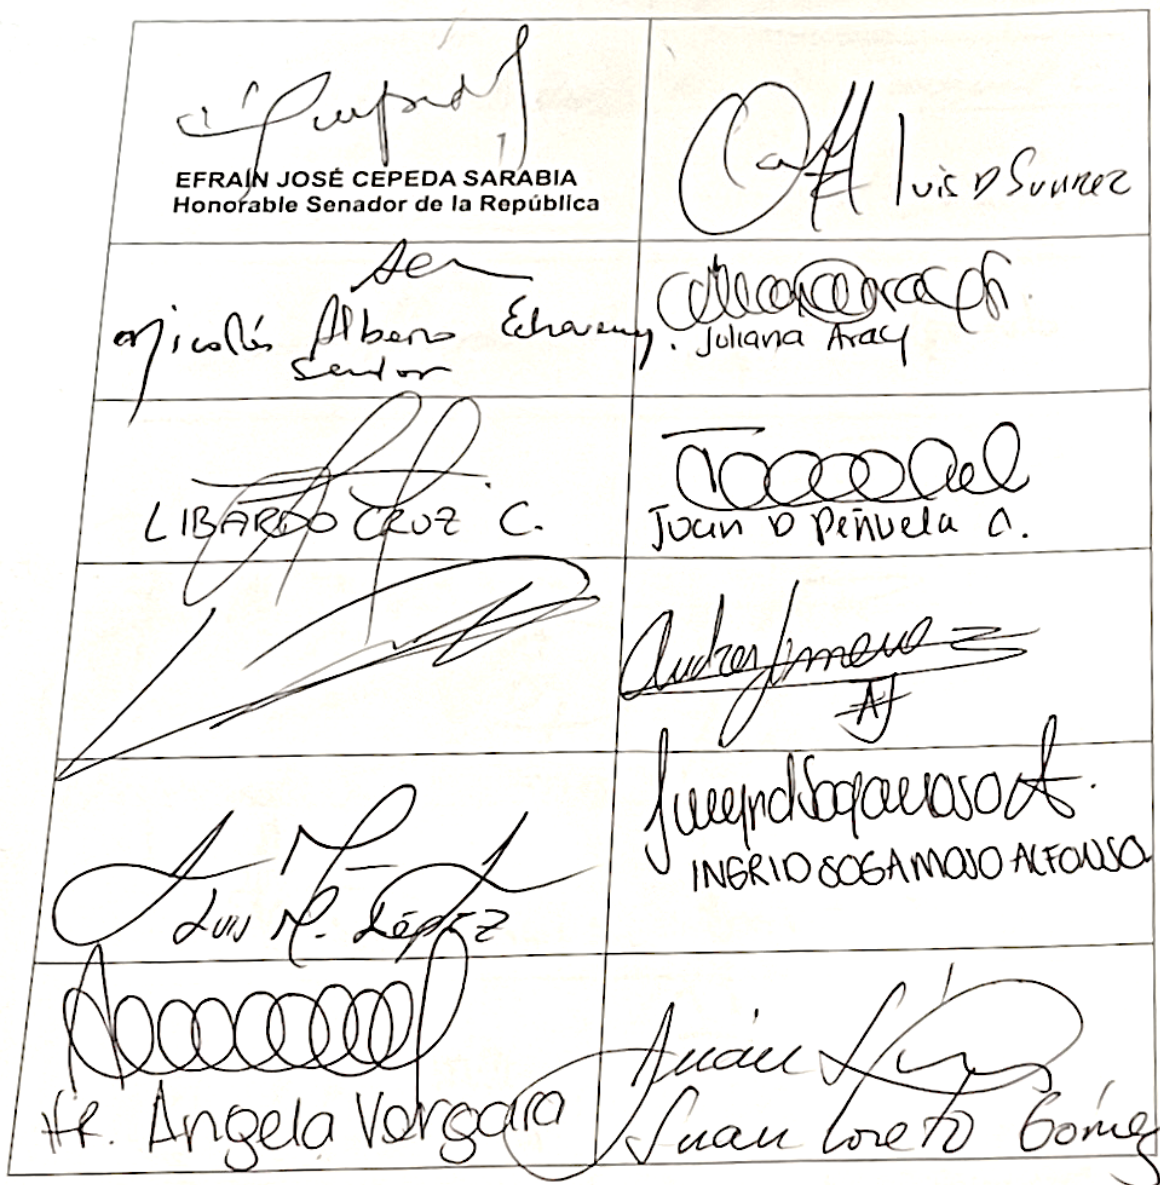 EFRAÍN JOSÉ CEPEDA SARABIA
Honorable Senador de la República
Luis D Suarez
Nicolás Albeiro Echeverry.
Senador
Juliana Aray
LIBARDO CRUZ C.
Juan D Peñuela C.
Andres Jimenez
AJ
Ingrid Sogamoso A.
INGRID SOGAMOSO ALFONSO
Luis M. López
HR. Angela Vergara
Juan Loreto Gómez